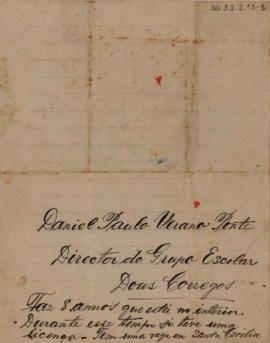 Daniel Paulo Verano Ponte
Director do Grupo Escolar
Dous Corregos
Faz 8 annos que está no interior.
Durante esse tempo só teve uma
licença. Tem uma vaga em Santa Cecilia